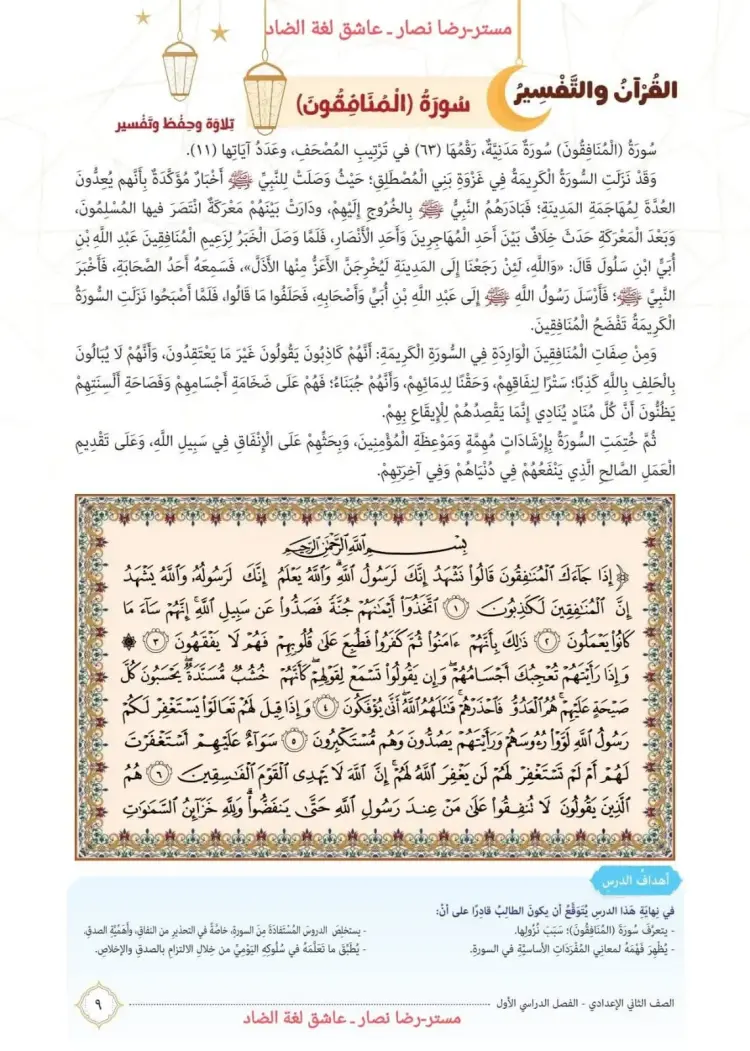 مستر-رضا نصار ـ عاشق لغة الضاد
القُرْآنُ والتَّفْسِيرُ
سُورَةُ (الْمُنَافِقُونَ)
تِلاوَة وحِفْظ وتَفْسير
سُورَةُ (الْمُنَافِقُونَ) سُورَةٌ مَدَنِيَّةٌ، رَقْمُهَا (٦٣) في تَرْتِيبِ المُصْحَفِ، وعَدَدُ آيَاتِها (١١).
وَقَدْ نَزَلَتِ السُّورَةُ الْكَرِيمَةُ فِي غَزْوَةِ بَنِي المُصْطَلِقِ؛ حَيْثُ وَصَلَتْ لِلنَّبِيِّ ﷺ أَخْبَارٌ مُؤَكَّدَةٌ بِأَنَّهم يُعِدُّونَ
العُدَّةَ لِمُهَاجَمَةِ المَدِينَةِ؛ فَبَادَرَهُمُ النَّبِيُّ ﷺ بِالخُرُوجِ إِلَيْهِمْ، ودَارَتْ بَيْنَهُمْ مَعْرَكَةٌ انْتَصَرَ فيها المُسْلِمُونَ،
وَبَعْدَ المَعْرَكَةِ حَدَثَ خِلَافٌ بَيْنَ أَحَدِ المُهَاجِرِينَ وَأَحَدِ الْأَنْصَارِ، فَلَمَّا وَصَلَ الْخَبَرُ لِزَعِيمِ الْمُنَافِقِينَ عَبْدِ اللَّهِ بْنِ
أُبَيٍّ ابْنِ سَلُولَ قَالَ: «وَاللَّهِ، لَئِنْ رَجَعْنَا إِلَى المَدِينَةِ لَيُخْرِجَنَّ الأَعَزُّ مِنْها الأَذَلَّ»، فَسَمِعَهُ أَحَدُ الصَّحَابَةِ، فَأَخْبَرَ
النَّبِيَّ ﷺ؛ فَأَرْسَلَ رَسُولُ اللَّهِ ﷺ إِلَى عَبْدِ اللَّهِ بْنِ أُبَيٍّ وَأَصْحَابِهِ، فَحَلَفُوا مَا قَالُوا، فَلَمَّا أَصْبَحُوا نَزَلَتِ السُّورَةُ
الْكَرِيمَةُ تَفْضَحُ الْمُنَافِقِينَ.
وَمِنْ صِفَاتِ الْمُنَافِقِينَ الْوَارِدَةِ فِي السُّورَةِ الْكَرِيمَةِ: أَنَّهُمْ كَاذِبُونَ يَقُولُونَ غَيْرَ مَا يَعْتَقِدُونَ، وَأَنَّهُمْ لَا يُبَالُونَ
بِالْحَلِفِ بِاللَّهِ كَذِبًا؛ سَتْرًا لِنِفَاقِهِمْ، وَحَقْنًا لِدِمَائِهِمْ، وَأَنَّهُمْ جُبَنَاءُ؛ فَهُمْ عَلَى ضَخَامَةِ أَجْسَامِهِمْ وَفَصَاحَةِ أَلْسِنَتِهِمْ
يَظُنُّونَ أَنَّ كُلَّ مُنَادٍ يُنَادِي إِنَّمَا يَقْصِدُهُمْ لِلْإِيقَاعِ بِهِمْ.
ثُمَّ خُتِمَتِ السُّورَةُ بِإِرْشَادَاتٍ مُهِمَّةٍ وَمَوْعِظَةِ الْمُؤْمِنِينَ، وَبِحَثِّهِمْ عَلَى الْإِنْفَاقِ فِي سَبِيلِ اللَّهِ، وَعَلَى تَقْدِيمِ
العَمَلِ الصَّالِحِ الَّذِي يَنْفَعُهُمْ فِي دُنْيَاهُمْ وَفِي آخِرَتِهِمْ.
بِسْمِ اللَّهِ الرَّحْمَٰنِ الرَّحِيمِ
﴿ إِذَا جَآءَكَ ٱلْمُنَٰفِقُونَ قَالُوا۟ نَشْهَدُ إِنَّكَ لَرَسُولُ ٱللَّهِ ۗ وَٱللَّهُ يَعْلَمُ إِنَّكَ لَرَسُولُهُۥ وَٱللَّهُ يَشْهَدُ
إِنَّ ٱلْمُنَٰفِقِينَ لَكَٰذِبُونَ ١ ٱتَّخَذُوٓا۟ أَيْمَٰنَهُمْ جُنَّةً فَصَدُّوا۟ عَن سَبِيلِ ٱللَّهِ ۚ إِنَّهُمْ سَآءَ مَا
كَانُوا۟ يَعْمَلُونَ ٢ ذَٰلِكَ بِأَنَّهُمْ ءَامَنُوا۟ ثُمَّ كَفَرُوا۟ فَطُبِعَ عَلَىٰ قُلُوبِهِمْ فَهُمْ لَا يَفْقَهُونَ ٣ ۞
وَإِذَا رَأَيْتَهُمْ تُعْجِبُكَ أَجْسَامُهُمْ ۖ وَإِن يَقُولُوا۟ تَسْمَعْ لِقَوْلِهِمْ ۖ كَأَنَّهُمْ خُشُبٌ مُّسَنَّدَةٌ ۖ يَحْسَبُونَ كُلَّ
صَيْحَةٍ عَلَيْهِمْ ۚ هُمُ ٱلْعَدُوُّ فَٱحْذَرْهُمْ ۚ قَٰتَلَهُمُ ٱللَّهُ ۖ أَنَّىٰ يُؤْفَكُونَ ٤ وَإِذَا قِيلَ لَهُمْ تَعَالَوْا۟ يَسْتَغْفِرْ لَكُمْ
رَسُولُ ٱللَّهِ لَوَّوْا۟ رُءُوسَهُمْ وَرَأَيْتَهُمْ يَصُدُّونَ وَهُم مُّسْتَكْبِرُونَ ٥ سَوَآءٌ عَلَيْهِمْ أَسْتَغْفَرْتَ
لَهُمْ أَمْ لَمْ تَسْتَغْفِرْ لَهُمْ لَن يَغْفِرَ ٱللَّهُ لَهُمْ ۚ إِنَّ ٱللَّهَ لَا يَهْدِى ٱلْقَوْمَ ٱلْفَٰسِقِينَ ٦ هُمُ
ٱلَّذِينَ يَقُولُونَ لَا تُنفِقُوا۟ عَلَىٰ مَنْ عِندَ رَسُولِ ٱللَّهِ حَتَّىٰ يَنفَضُّوا۟ ۗ وَلِلَّهِ خَزَآئِنُ ٱلسَّمَٰوَٰتِ
أهدافُ الدرسِ
في نِهايَةِ هَذا الدرسِ يُتَوَقَّعُ أن يكونَ الطالِبُ قادِرًا على أنْ:
- يتعرَّفَ سُورَةَ (الْمُنَافِقُونَ)؛ سَبَبَ نُزُولِها.
- يُظْهِرَ فَهْمَهُ لمعاني المُفْرَدَاتِ الأساسيَّةِ في السورةِ.
- يستخلِصَ الدروسَ المُسْتَفادَةَ مِنَ السورةِ، خاصَّةً في التحذيرِ من النفاقِ، وأَهَمِّيَّةِ الصدقِ.
- يُطَبِّقَ ما تَعَلَّمَهُ في سُلُوكِهِ اليَوْمِيِّ من خِلالِ الالتزامِ بالصدقِ والإخلاصِ.
الصف الثاني الإعدادي - الفصل الدراسي الأول
٩
مستر-رضا نصار ـ عاشق لغة الضاد